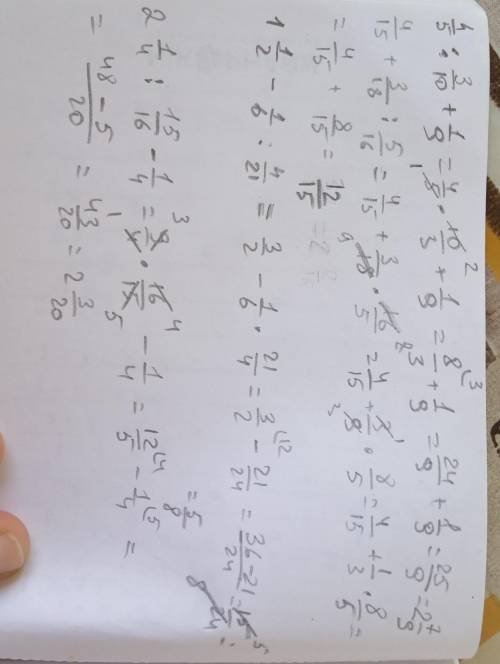 4/5 : 3/10 + 1/9 = 4/5 · 10/3 + 1/9 = 8/3 + 1/9 = 24/9 + 1/9 = 25/9 = 2 7/9
4/15 + 3/18 : 5/16 = 4/15 + 3/18 · 16/5 = 4/15 + 3/9 · 8/5 = 4/15 + 1/3 · 8/5 =
= 4/15 + 8/15 = 12/15
1 1/2 - 1/6 : 4/21 = 3/2 - 1/6 · 21/4 = 3/2 - 21/24 = 36-21/24 = 15/24 =
= 5/8
2 1/4 : 15/16 - 1/4 = 9/4 · 16/15 - 1/4 = 12/5 - 1/4 =
= 48-5/20 = 43/20 = 2 3/20